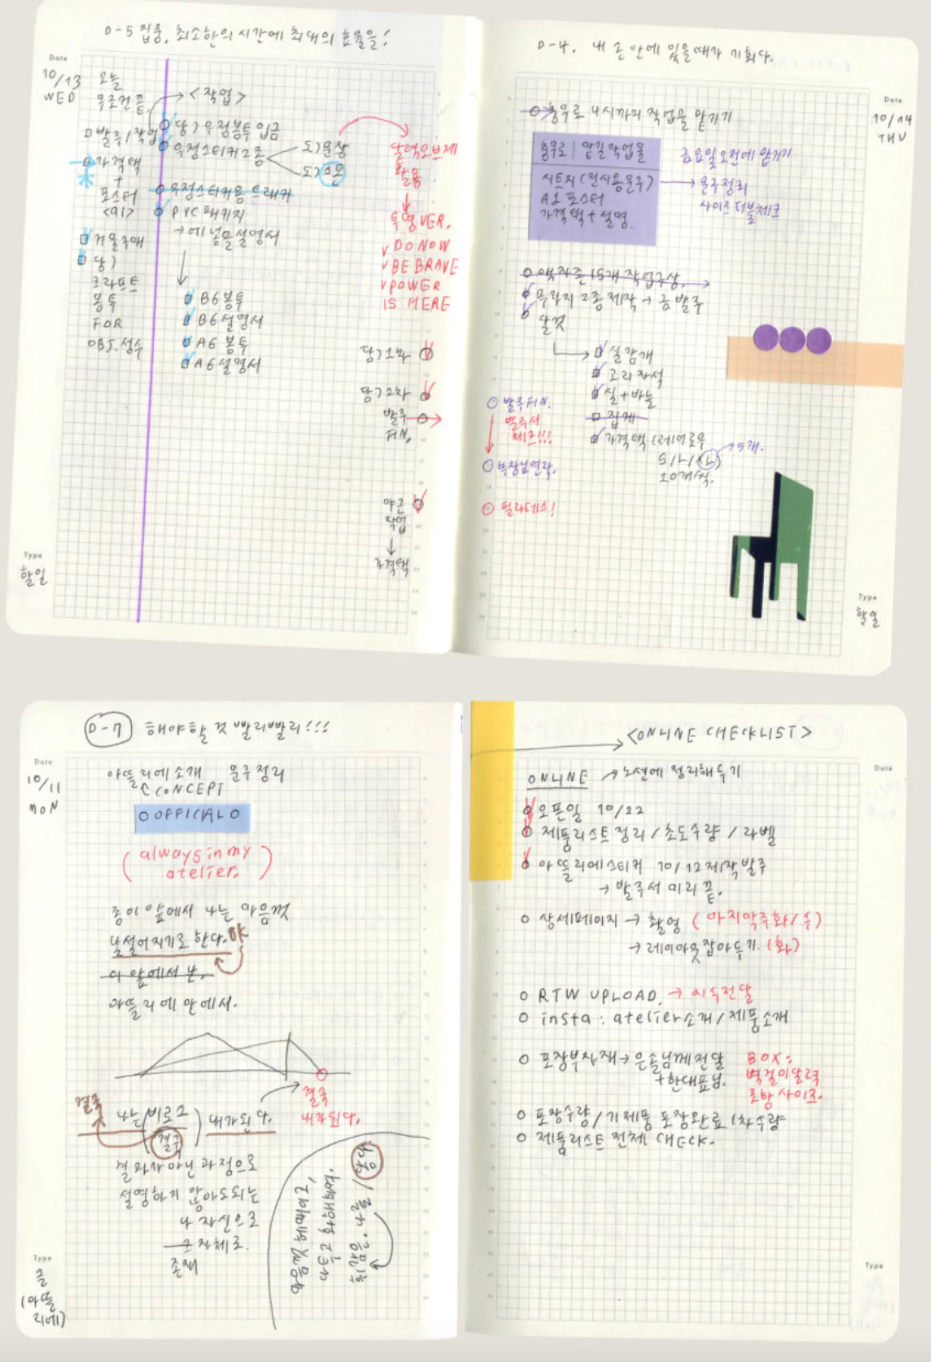 D-5 집중, 최소한의 시간에 최대의 효율을!
Date
10/13
WED
오늘
무조건 끝.
발주/작업
가격택
+
포스터
<AI>
거울구매
당?
크라프트
봉투
FOR
OBJ. 성수
<작업>
당? 우정봉투입금
우정스티커 2종
도?문장
도?
우정스티커용 트래커
PVC 패키지
→ 에 넣을 설명서
B6 봉투
B6 설명서
A6 봉투
A6 설명서
달력오브제
활용
투명 VER.
DO NOW
BE BRAVE
POWER
IS HERE
당? 1차
당? 2차
발주
FIN.
야근
작업
가격택
Type
할일
D-4. 내 손 안에 있을때가 기회다.
Date
10/14
THU
충무로 4시까지 작업물 맡기기
충무로 | 맡길작업물
시트지 (전시용문구)
A1 포스터
가격택 + 설명.
금요일 오전에 맡기기
문구정리
사이즈 더블체크
액자존 15개 작업구상.
2종 제작 → 금 발주
살것
실감개
고리자석
실+바늘
집게
가격택 (레이로우
S/L/XL)
10개씩.
5개.
발주 FIN.
발주서
체크!!!
부장님연락.
필라테스!
Type
할일
D-7 해야할 것 빨리빨리!!!
Date
10/11
MON
아뜰리에소개 문구정리
CONCEPT
OFFICIAL
(always in my
atelier.)
종이 앞에서 나는 마음껏
낯설어지기로 한다. 야
이 앞에서 난,
아뜰리에 안에서.
결국
내가된다.
결국
나는 (비로소) 내가 된다.
결국
결과가 아닌 과정으로
설명하지 않아도되는
나 자신으로
그 자체로.
존재
Type
글
(아뜰
리에)
<ONLINE CHECKLIST>
Date
ONLINE → 노션에 정리해두기
오픈일 10/22
제품리스트 정리 / 초도수량 / 라벨
아뜰리에스티커 10/12 제작발주
→ 발주서 미리 끝.
상세페이지 → 촬영 (마지막주화/수)
→ 레이아웃잡아두기. (화)
RTW UPLOAD. → 지수전달
insta : atelier소개 / 제품소개
포장부자재 → 은솔님께전달
+한대표님.
BOX:
벽걸이달력
포함 사이즈.
포장수량 / 기제품 포장완료 1차수량
제품리스트 전체 CHECK.
Type